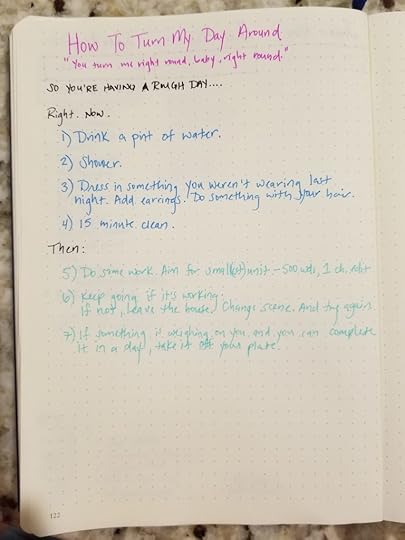 How To Turn My Day Around
"You turn me right round, baby, right round."
SO YOU'RE HAVING A ROUGH DAY....
Right. Now.
1) Drink a pint of water.
2) Shower.
3) Dress in something you weren't wearing last
night. Add earrings. Do something with your hair.
4) 15 minute clean.
Then:
5) Do some work. Aim for small(est) unit - 500 wds, 1 ch. edit
6) Keep going if it's working.
If not, leave the house. Change scene. And try again.
7) If something is weighing on you and you can complete
it in a day, take it off your plate.
122